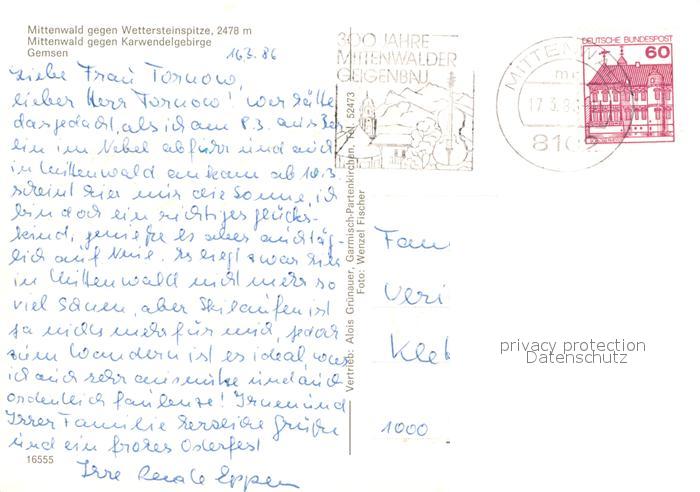 Mittenwald gegen Wettersteinspitze, 2478 m
Mittenwald gegen Karwendelgebirge
Gemsen
16.3.86
Liebe Frau Tornow,
lieber Herr Tornow! Wer hätte
das gedacht, als ich am 8.3. aus Ber
lin im Nebel abfuhr und auch
in Mittenwald ankam ab 10.3.
scheint hier mir die Sonne, ich
bin doch ein richtiges Glücks-
kind, genieße es aber auch täg-
lich auf Neue. Es liegt zwar hier
in Mittenwald nicht mehr so
viel Schnee, aber Skilaufen ist
ja nichts mehr für mich, jedoch
zum Wandern ist es ideal, was
ich auch sehr ausnutze und auch
ordentlich faulenze! Ihnen und
Ihrer Familie herzliche Grüße
und ein frohes Osterfest
Ihre Renate Eppen
16555
Vertrieb: Alois Grünauer, Garmisch-Partenkirchen, Tel. 52473
Foto: Wenzel Fischer
300 JAHRE
MITTENWALDER
GEIGENBAU
MITTENWA
17.3.86
8102
DEUTSCHE BUNDESPOST
60
Fam
Veri
Klet
1000
privacy protection
Datenschutz